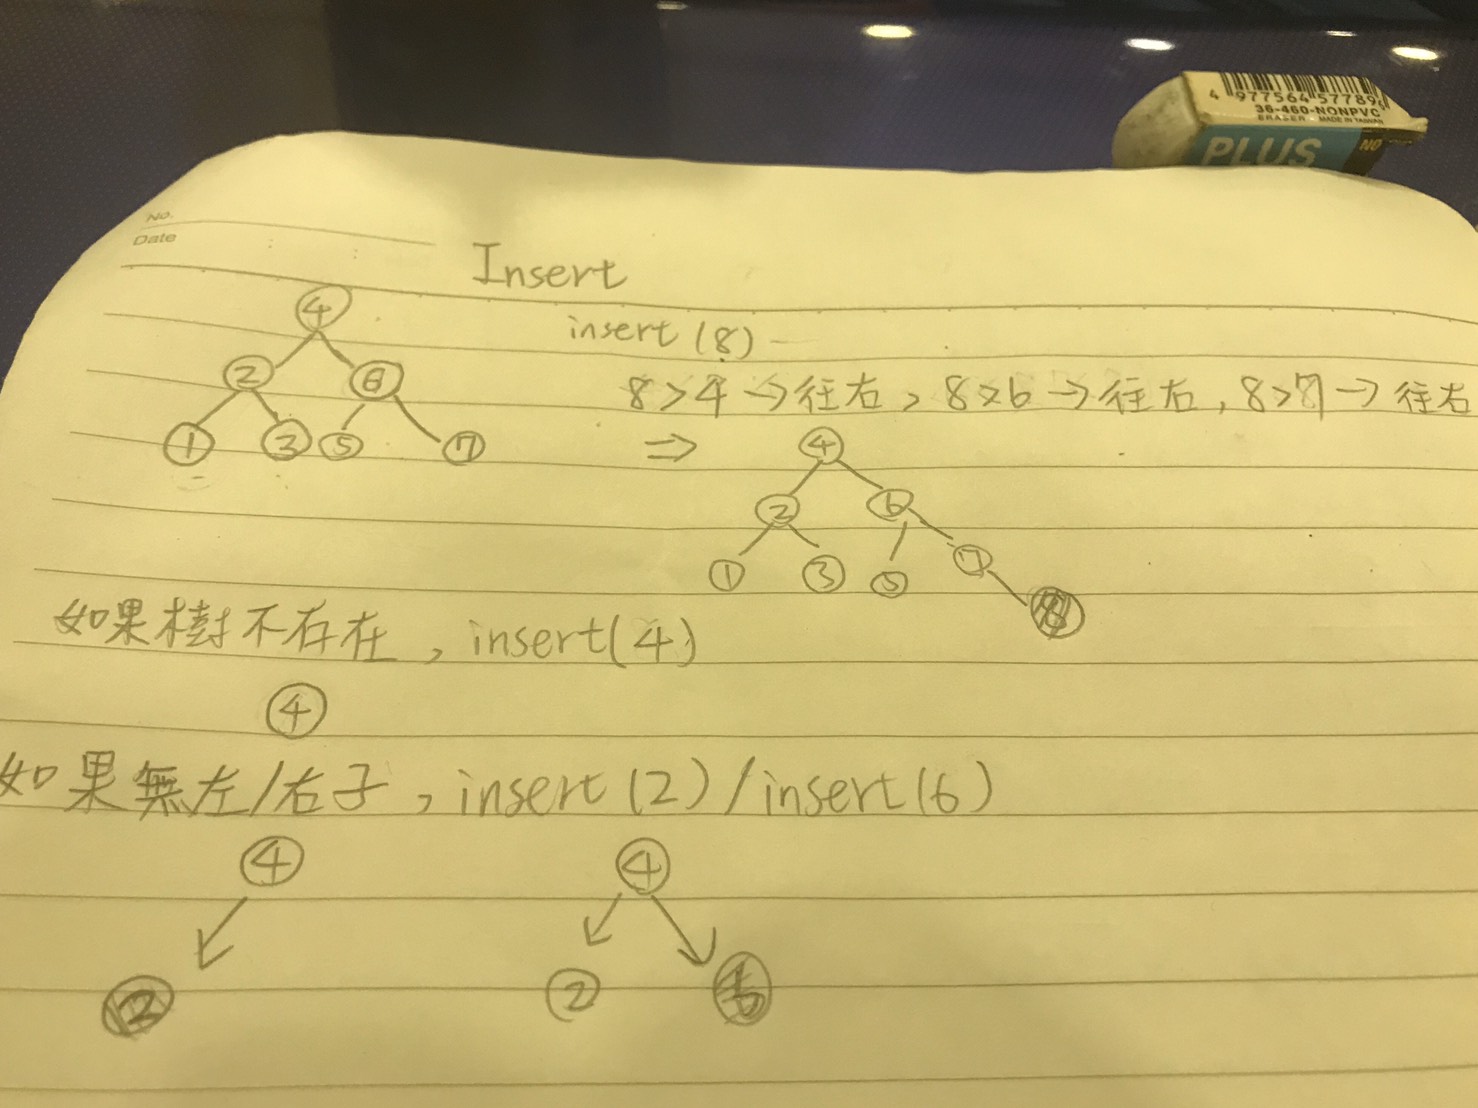 4 977564 57789
36-460-NONPVC
ERASER · MADE IN TAIWAN
PLUS
NO
No.
Date
Insert
4
insert (8)
2 6
8>4→往右, 8>6→往右, 8>7→往右
1 3 5 7
⇒
4
2 6
1 3 5 7
8
如果樹不存在, insert(4)
4
如果無左/右子, insert(2)/insert(6)
4 4
2 2 6